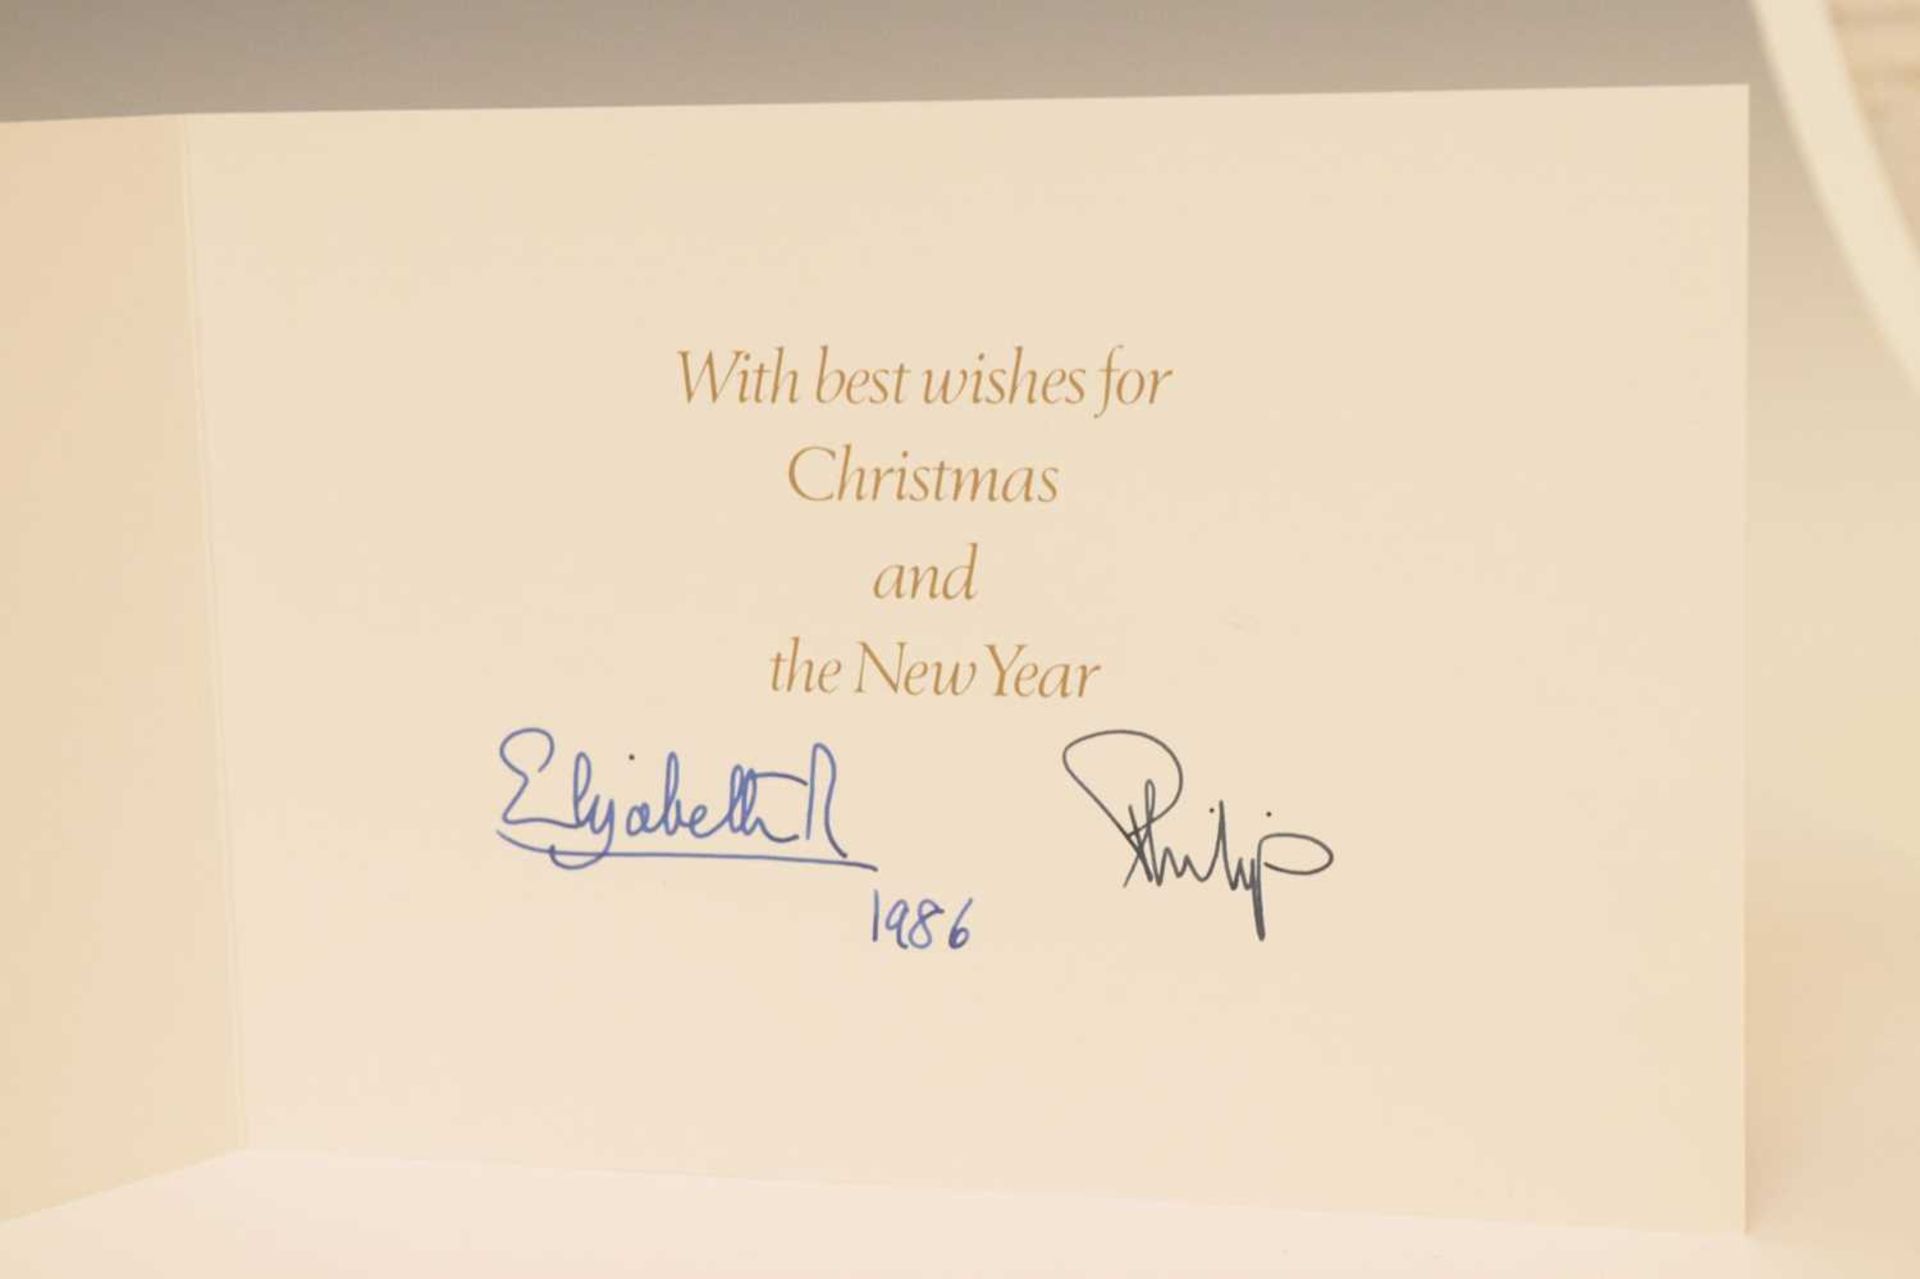 With best wishes for
Christmas
and
the New Year
Elizabeth R Philip
1986